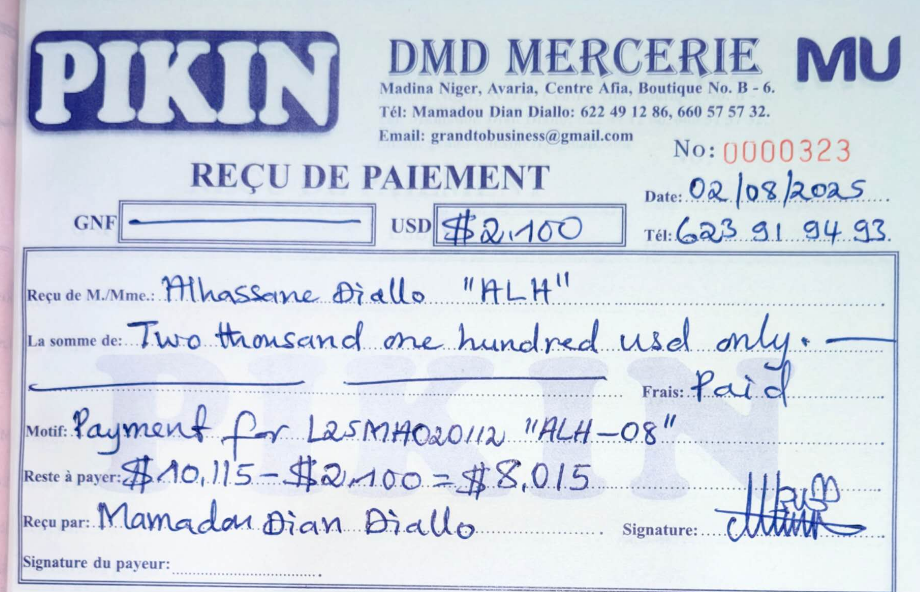 PIKIN
DMD MERCERIE
MU
Madina Niger, Avaria, Centre Afia, Boutique No. B - 6.
Tél: Mamadou Dian Diallo: 622 49 12 86, 660 57 57 32.
Email: grandtobusiness@gmail.com
No: 0000323
REÇU DE PAIEMENT
Date: 02/08/2025
GNF
USD $2,100
Tél: 623 91 94 93
Reçu de M./Mme.: Alhassane Diallo "ALH"
La somme de: Two thousand one hundred usd only.
Frais: Paid
Motif: Payment for L25MA020112 "ALH-08"
Reste à payer: $10,115 - $2,100 = $8,015
Reçu par: Mamadou Dian Diallo
Signature:
Signature du payeur:
PIKIN